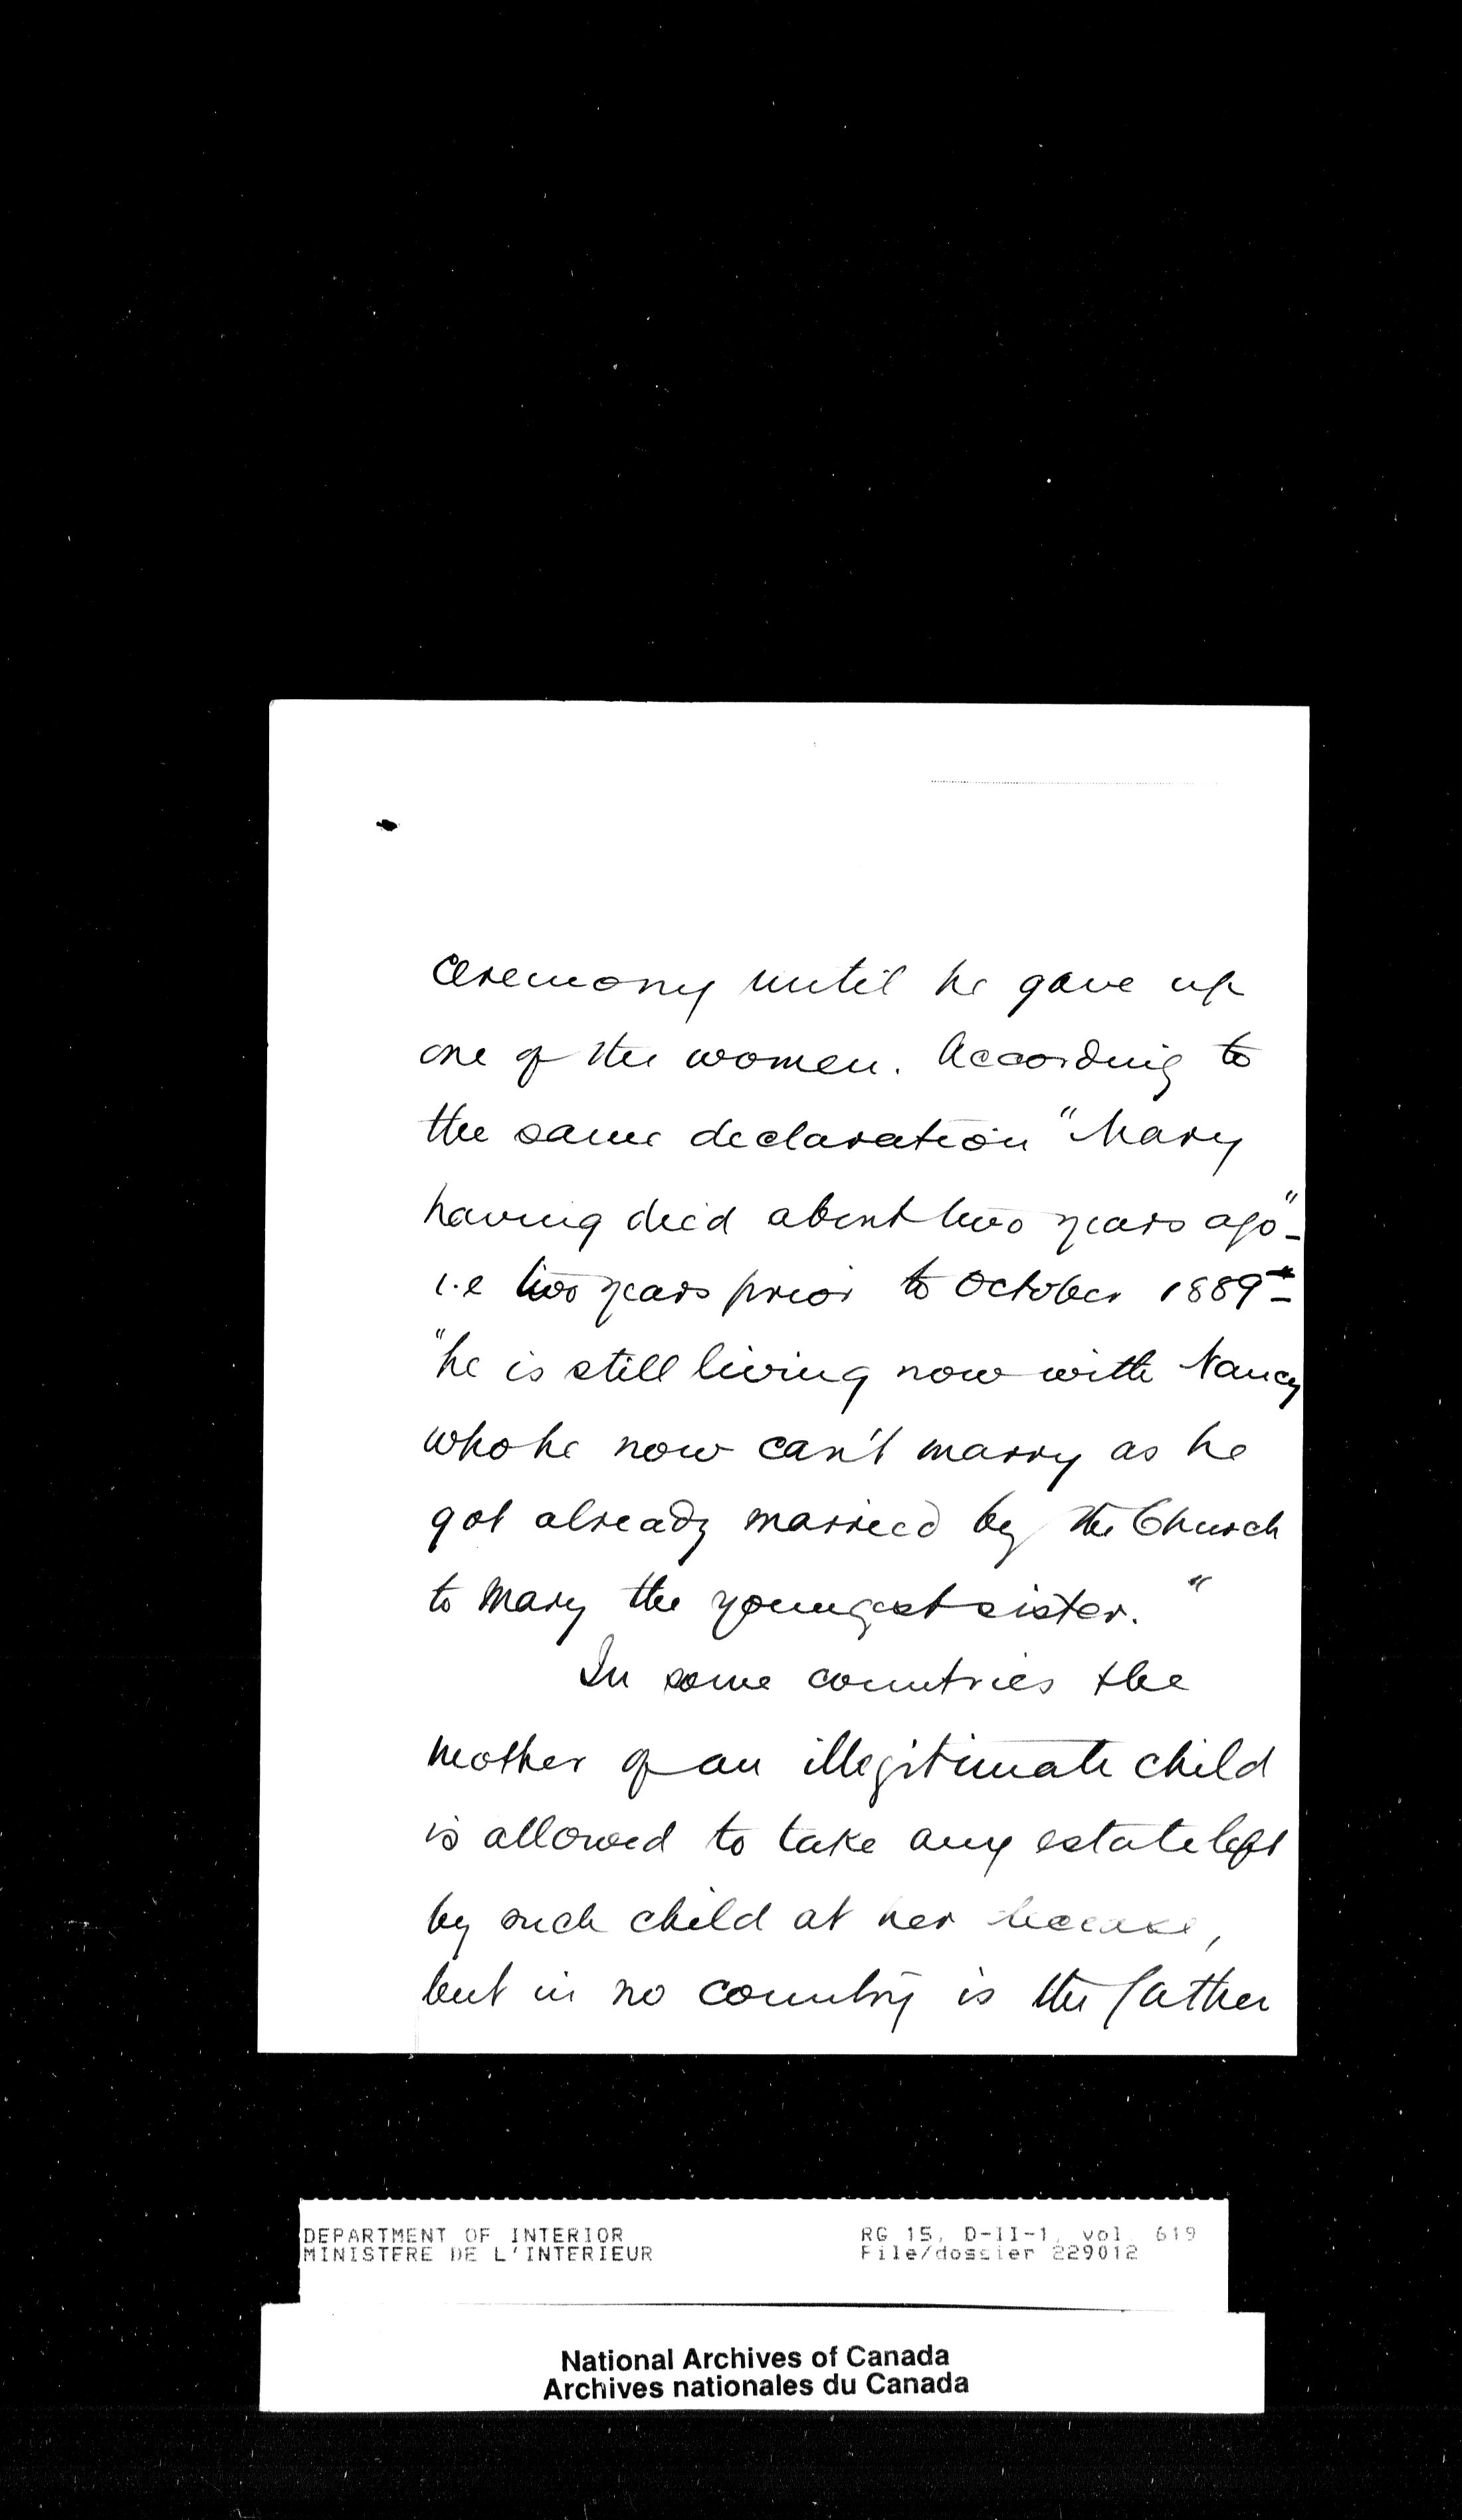 ceremony until he gave up
one of the women. According to
the same declaration "Mary
having died about two years ago"-
i.e two years prior to October 1889-
"he is still living now with Nancy
who he now can't marry as he
got already married by the Church
to Mary the youngest sister."
In some countries the
mother of an illegitimate child
is allowed to take any estate left
by such child at her decease,
but in no country is the father
DEPARTMENT OF INTERIOR RG 15, D-II-1, vol. 619
MINISTERE DE L'INTERIEUR File/dossier 229012
National Archives of Canada
Archives nationales du Canada